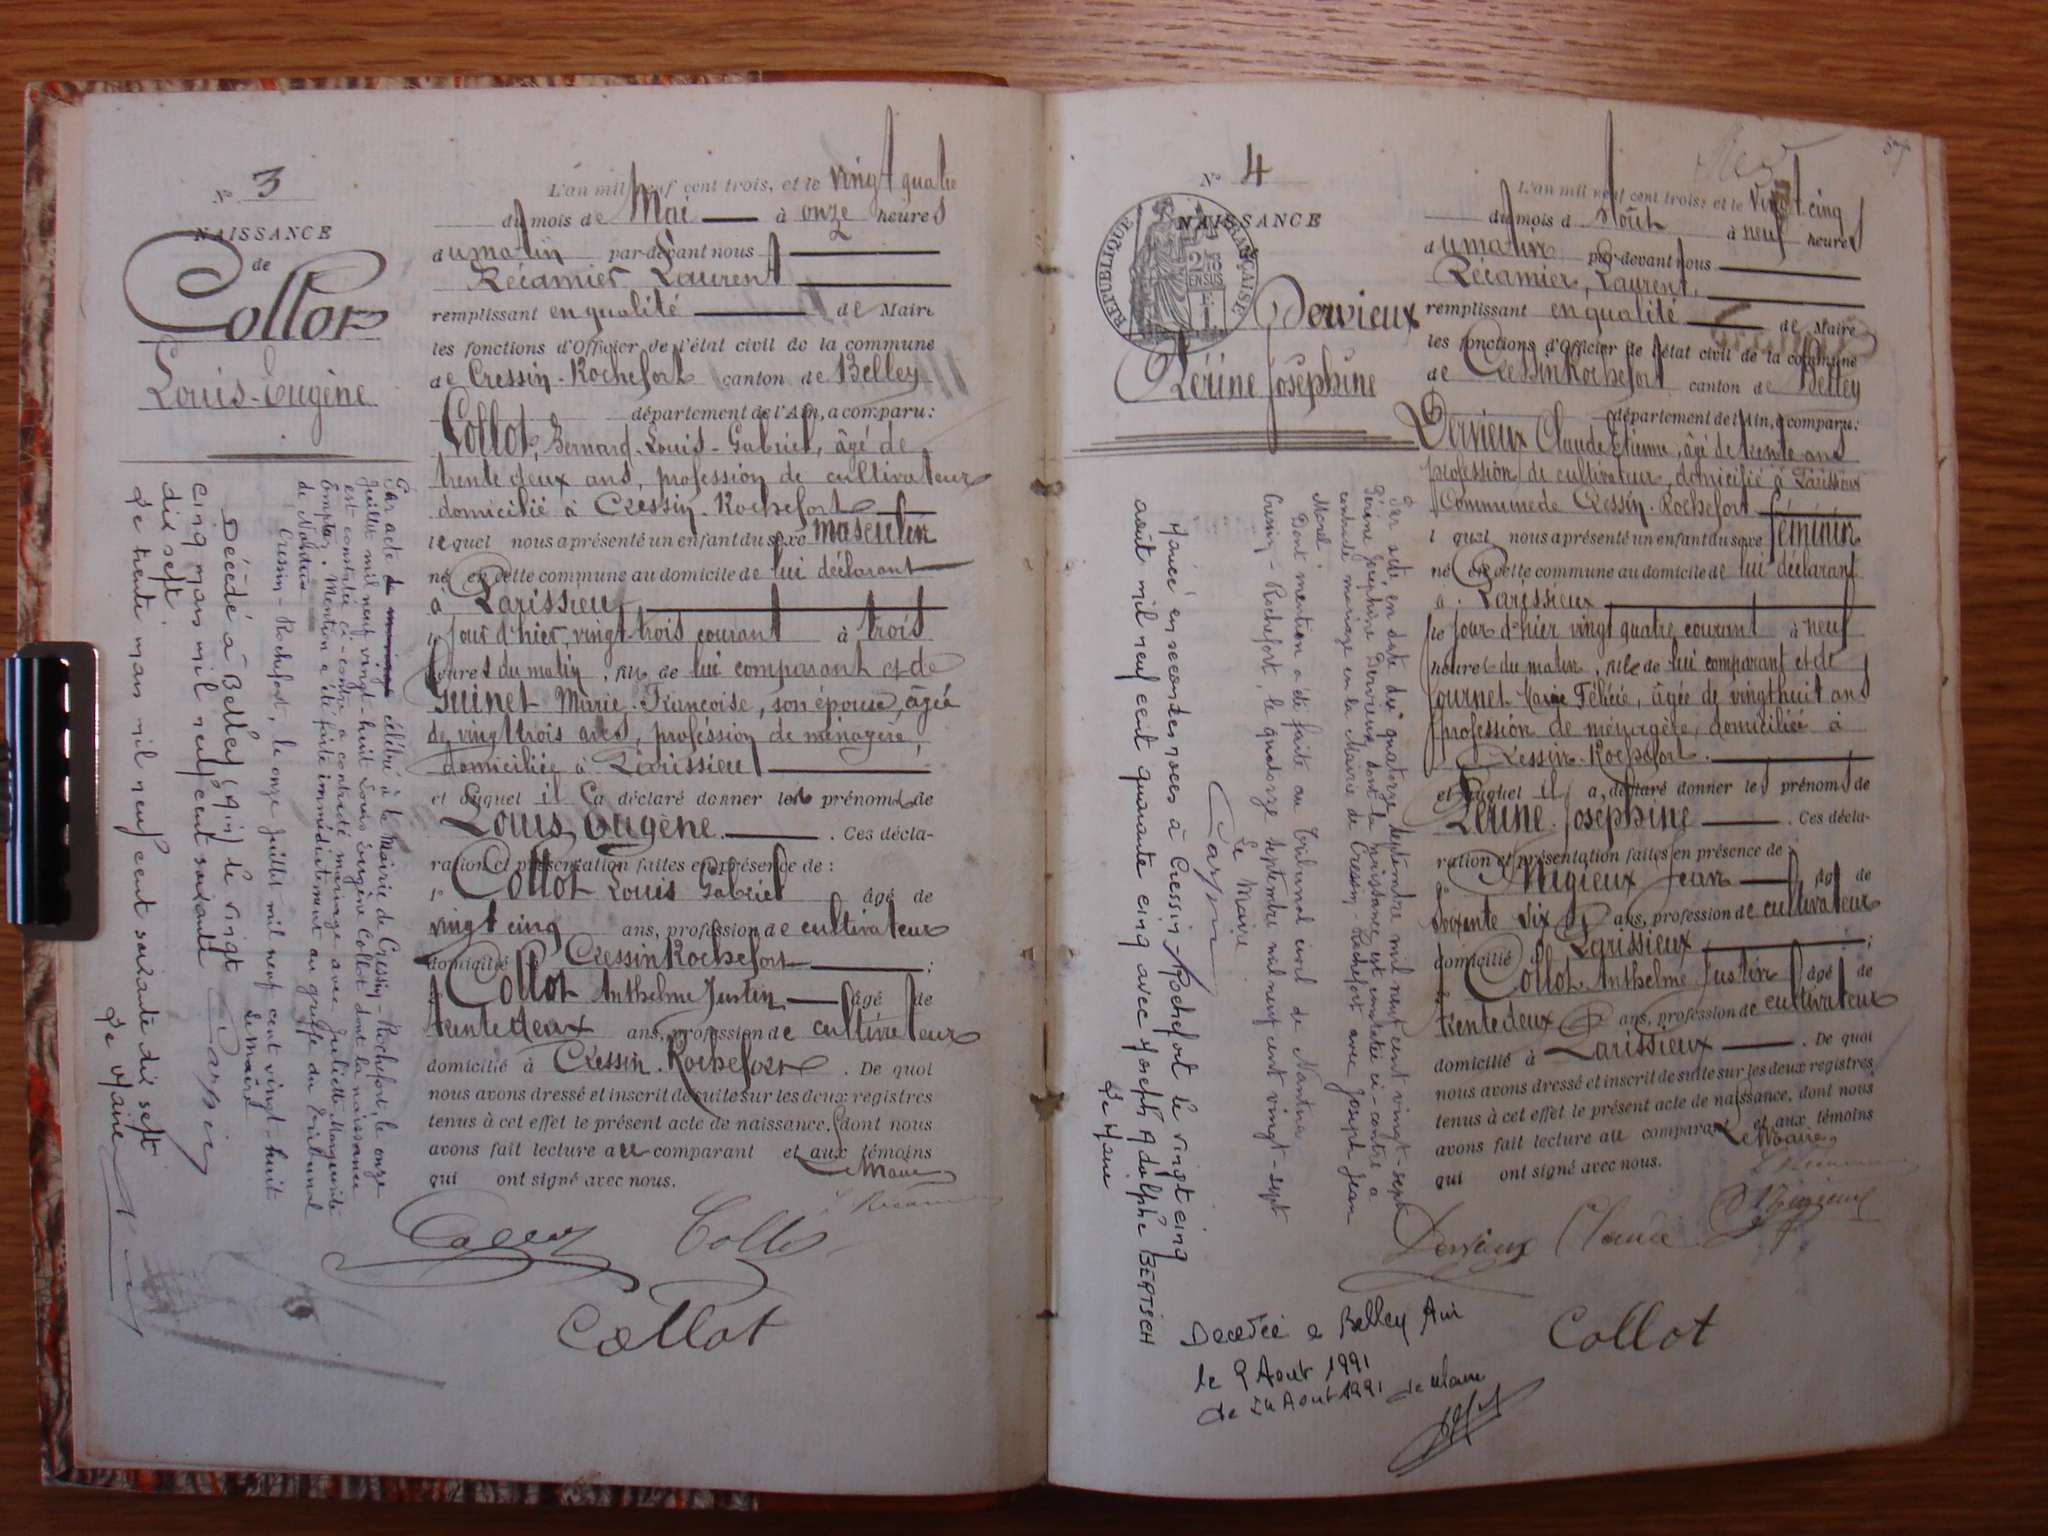 N° 3
NAISSANCE
de
Collot
Louis-Eugène
L'an mil neuf cent trois, et le vingt quatre
du mois de Mai à onze heures
du matin par-devant nous
Récamier Laurent
remplissant en qualité de Maire
les fonctions d'Officier de l'état civil de la commune
de Cressin-Rochefort canton de Belley
département de l'Ain, a comparu:
Collot, Bernard-Louis-Gabriel, âgé de
trente deux ans, profession de cultivateur
domicilié à Cressin-Rochefort
lequel nous a présenté un enfant du sexe masculin
né en cette commune au domicile de lui déclarant
à Parissieu
le jour d'hier, vingt trois courant à trois
heures du matin, fils de lui comparant et de
Guinet Marie-Françoise, son épouse, âgée
de vingt trois ans, profession de ménagère,
domiciliée à Parissieu
et auquel il a déclaré donner les prénoms de
Louis Eugène. Ces décla-
ration et présentation faites en présence de :
1° Collot Louis Gabriel âgé de
vingt cinq ans, profession de cultivateur
domicilié à Cressin Rochefort ;
2° Collot Anthelme Justin âgé de
trente deux ans, profession de cultivateur
domicilié à Cressin-Rochefort. De quoi
nous avons dressé et inscrit de suite sur les deux registres
tenus à cet effet le présent acte de naissance, dont nous
avons fait lecture au comparant et aux témoins
qui ont signé avec nous.
Le Maire
Récamier
Collot
Collot
Par acte de mariage célébré à la Mairie de Cressin-Rochefort, le onze
juillet mil neuf cent vingt-huit Louis Eugène Collot dont la naissance
est constatée ci-contre a contracté mariage avec Juliette Marguerite
. Mention a été faite immédiatement au greffe du Tribunal
de Nantua
Cressin-Rochefort, le onze juillet mil neuf cent vingt-huit
Le Maire
Décédé à Belley (Ain) le vingt
cinq mars mil neuf cent soixante
dix sept.
Le trente mars mil neuf cent soixante dix sept
Le Maire
N° 4
NAISSANCE
RÉPUBLIQUE FRANÇAISE
Dervieux
Périne Joséphine
L'an mil neuf cent trois, et le vingt cinq
du mois d'Août à neuf heures
du matin par-devant nous
Récamier, Laurent,
remplissant en qualité de Maire
les fonctions d'Officier de l'état civil de la commune
de Cressin Rochefort canton de Belley
département de l'Ain, a comparu:
Dervieux Claude Etienne, âgé de trente ans
profession de cultivateur, domicilié à Parissieux
Commune de Cressin-Rochefort
lequel nous a présenté un enfant du sexe féminin
né en cette commune au domicile de lui déclarant
à Parissieux
le jour d'hier vingt quatre courant à neuf
heures du matin, fille de lui comparant et de
Fournet Marie Félicie, âgée de vingt huit ans
profession de ménagère, domiciliée à
Cressin-Rochefort.
et auquel il a déclaré donner les prénoms de
Périne-Joséphine. Ces décla-
ration et présentation faites en présence de :
1° Migieux Jean âgé de
soixante six ans, profession de cultivateur
domicilié à Parissieux ;
2° Collot Anthelme Justin âgé de
trente deux ans, profession de cultivateur
domicilié à Parissieux. De quoi
nous avons dressé et inscrit de suite sur les deux registres
tenus à cet effet le présent acte de naissance, dont nous
avons fait lecture au comparant et aux témoins
qui ont signé avec nous.
Le Maire,
Récamier
Dervieux Claude
Migieux
Collot
Par acte en date du quatorze septembre mil neuf cent vingt-sept
Périne Joséphine Dervieux dont la naissance est constatée ci-contre a
contracté mariage en la Mairie de Cressin-Rochefort avec Joseph Jean
Morel.
Dont mention a été faite au Tribunal civil de Nantua
Cressin-Rochefort, le quatorze septembre mil neuf cent vingt-sept
Le Maire
Mariée en secondes noces à Cressin-Rochefort le vingt cinq
août mil neuf cent quarante cinq avec Joseph Adolphe BERTSCH
Le Maire
Décédée à Belley Ain
le 9 Aout 1991
Le 24 Aout 1991 Le Maire